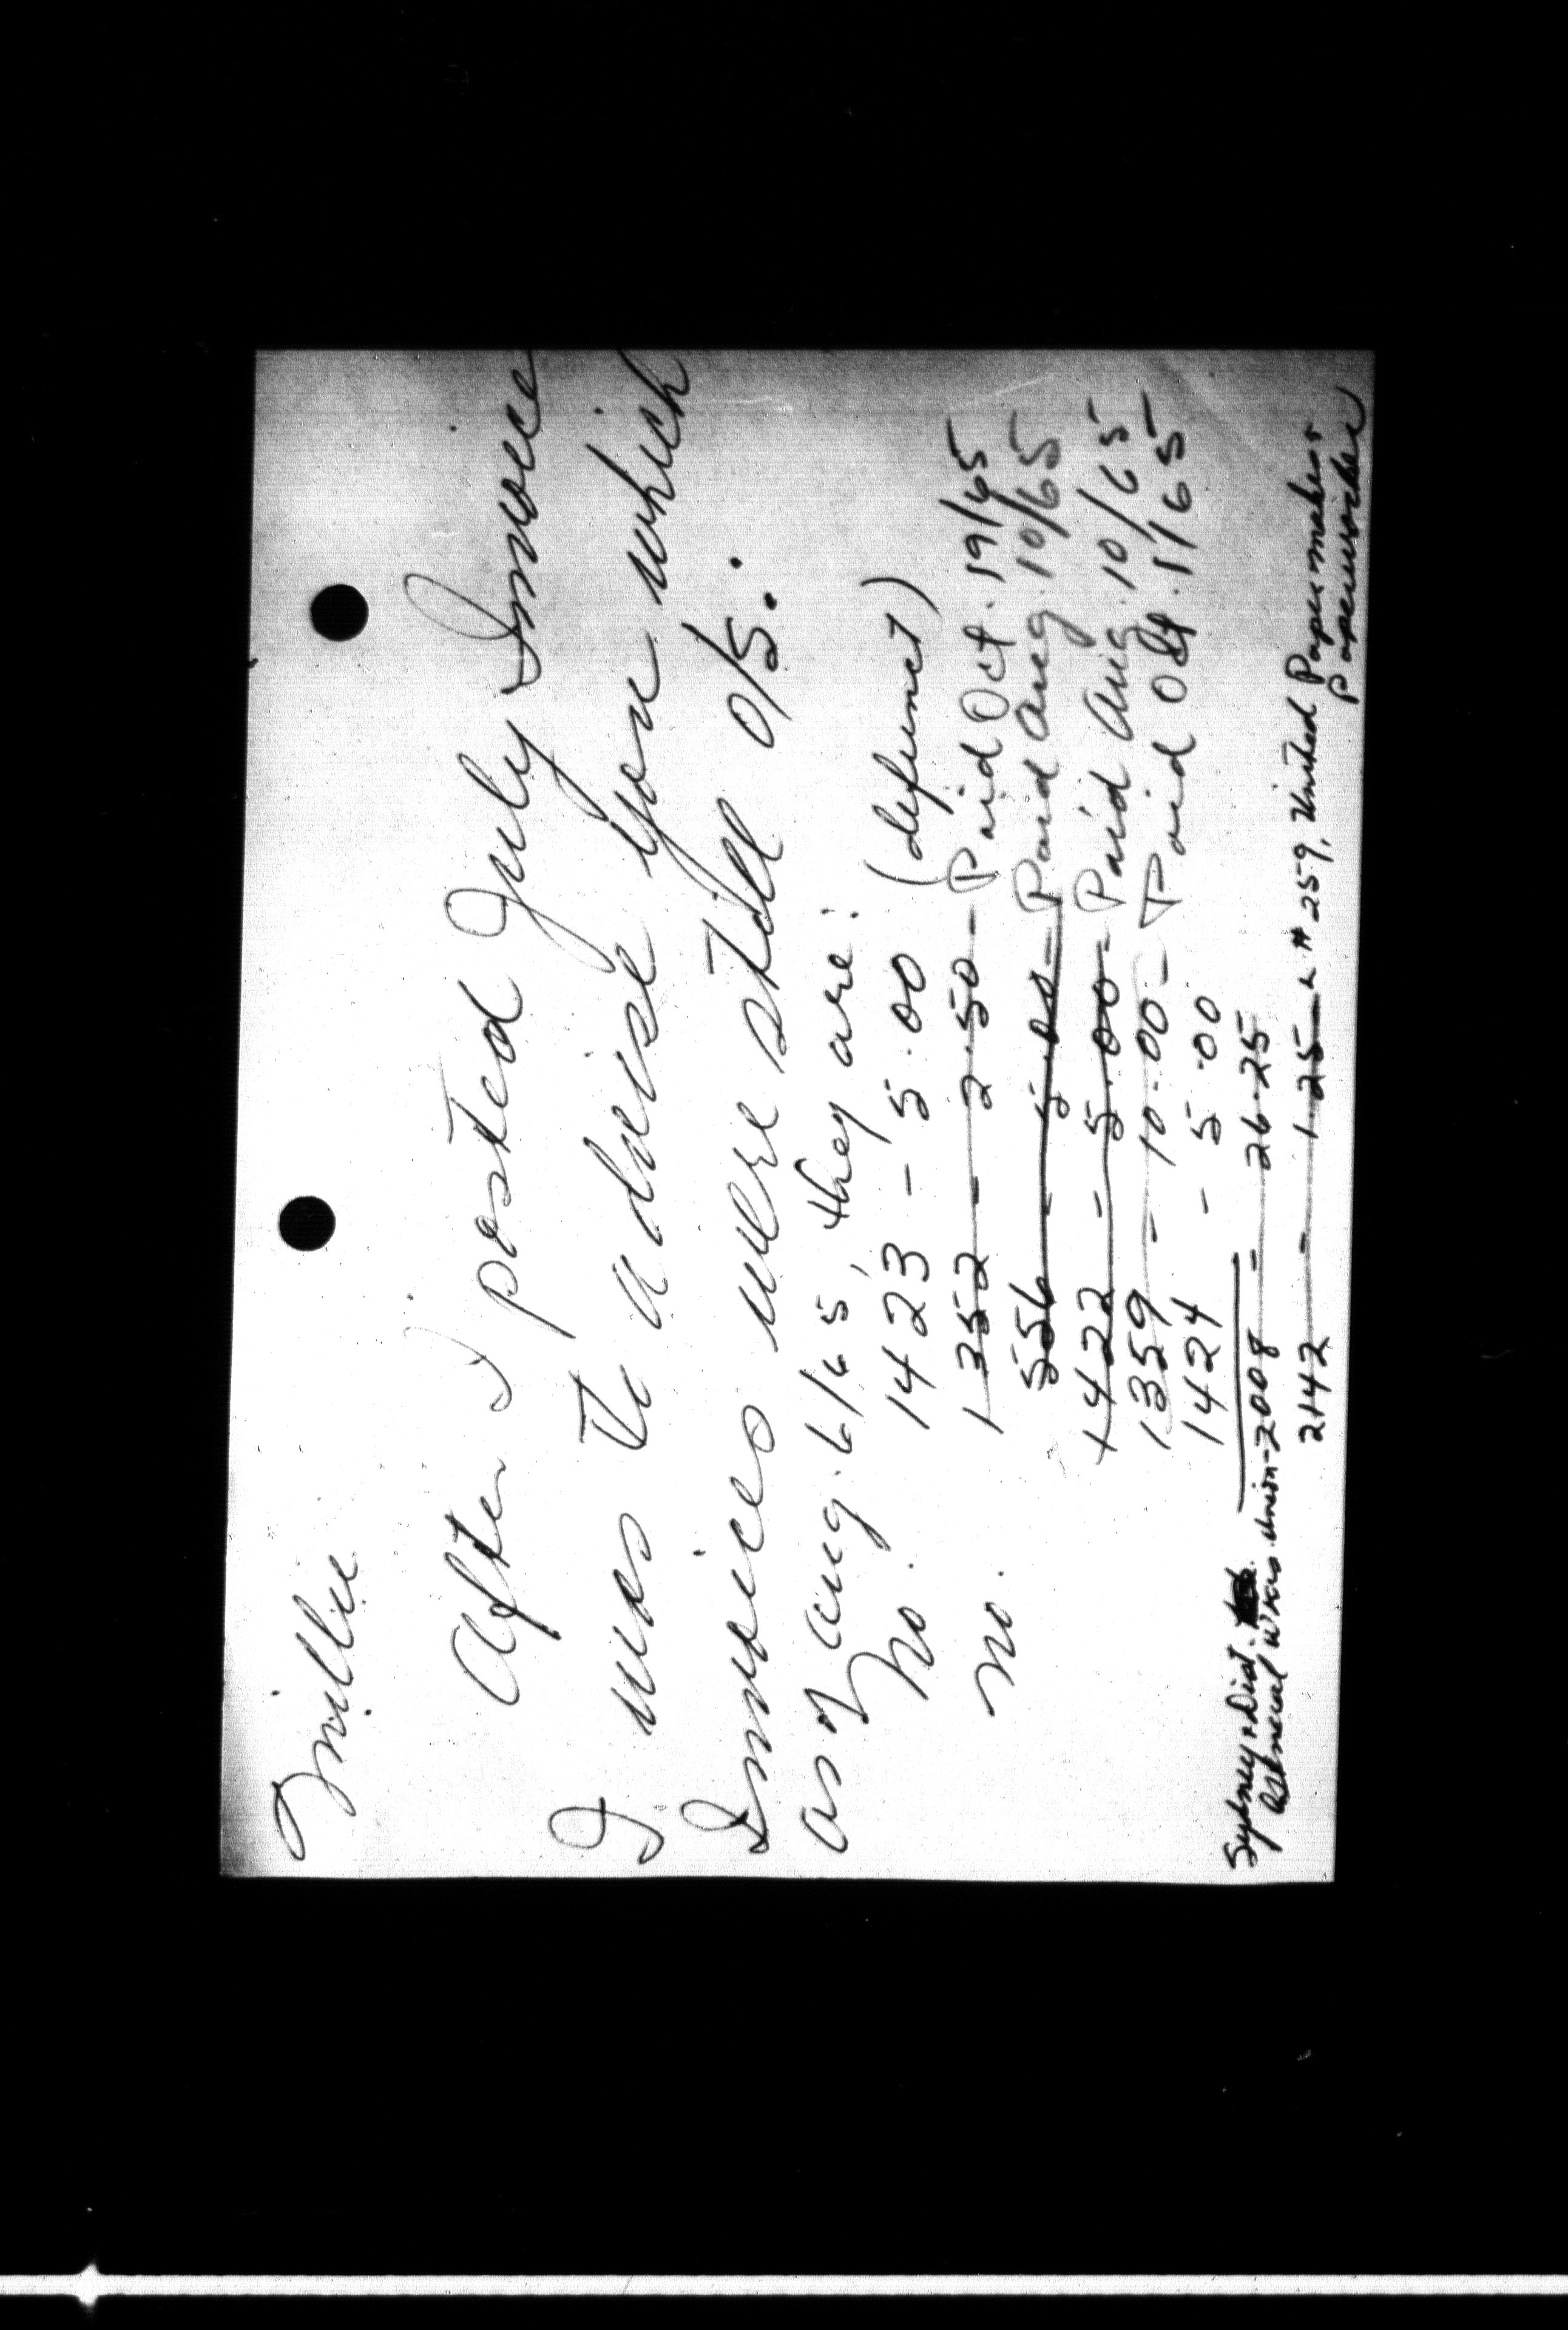 Millie
After I posted July Invoice
I was to advise you which
Invoices were still O/S.
as of Aug. 6/65, they are:
No. 1423 - 5.00 (defunct)
No. 1352 - 2.50 - Paid Oct. 19/65
556 - 5.00 - Paid Aug. 10/65
1422 - 5.00 - Paid Aug. 10/65
1359 - 10.00 - Paid Oct. 1/65
1424 - 5.00
Sydney & Dist.
General W'kers Union - 2008 - 26.25
2142 - 1.25 - #259, United Papermakers &
Paperworkers